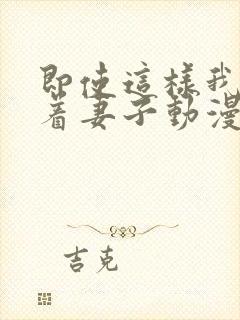 即使這樣我
着妻子動漫
吉克